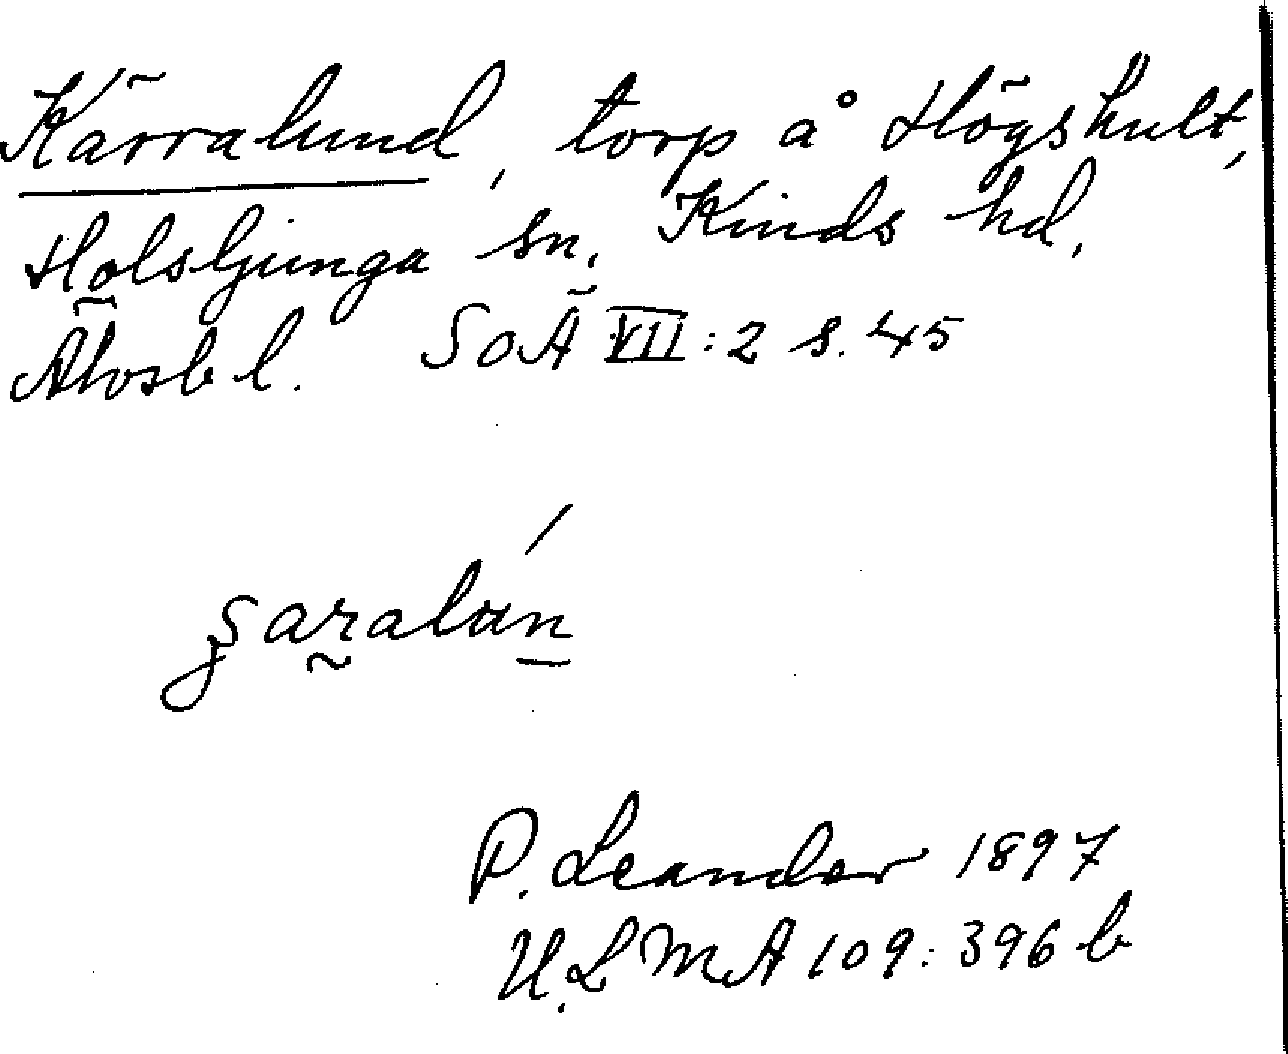 Kärralund, torp å Högshult,
Holsljunga sn. Kinds hd,
Älvsb l. SOÄ VII:2 s. 45
P. Leander 1897
ULMA 109:396 b